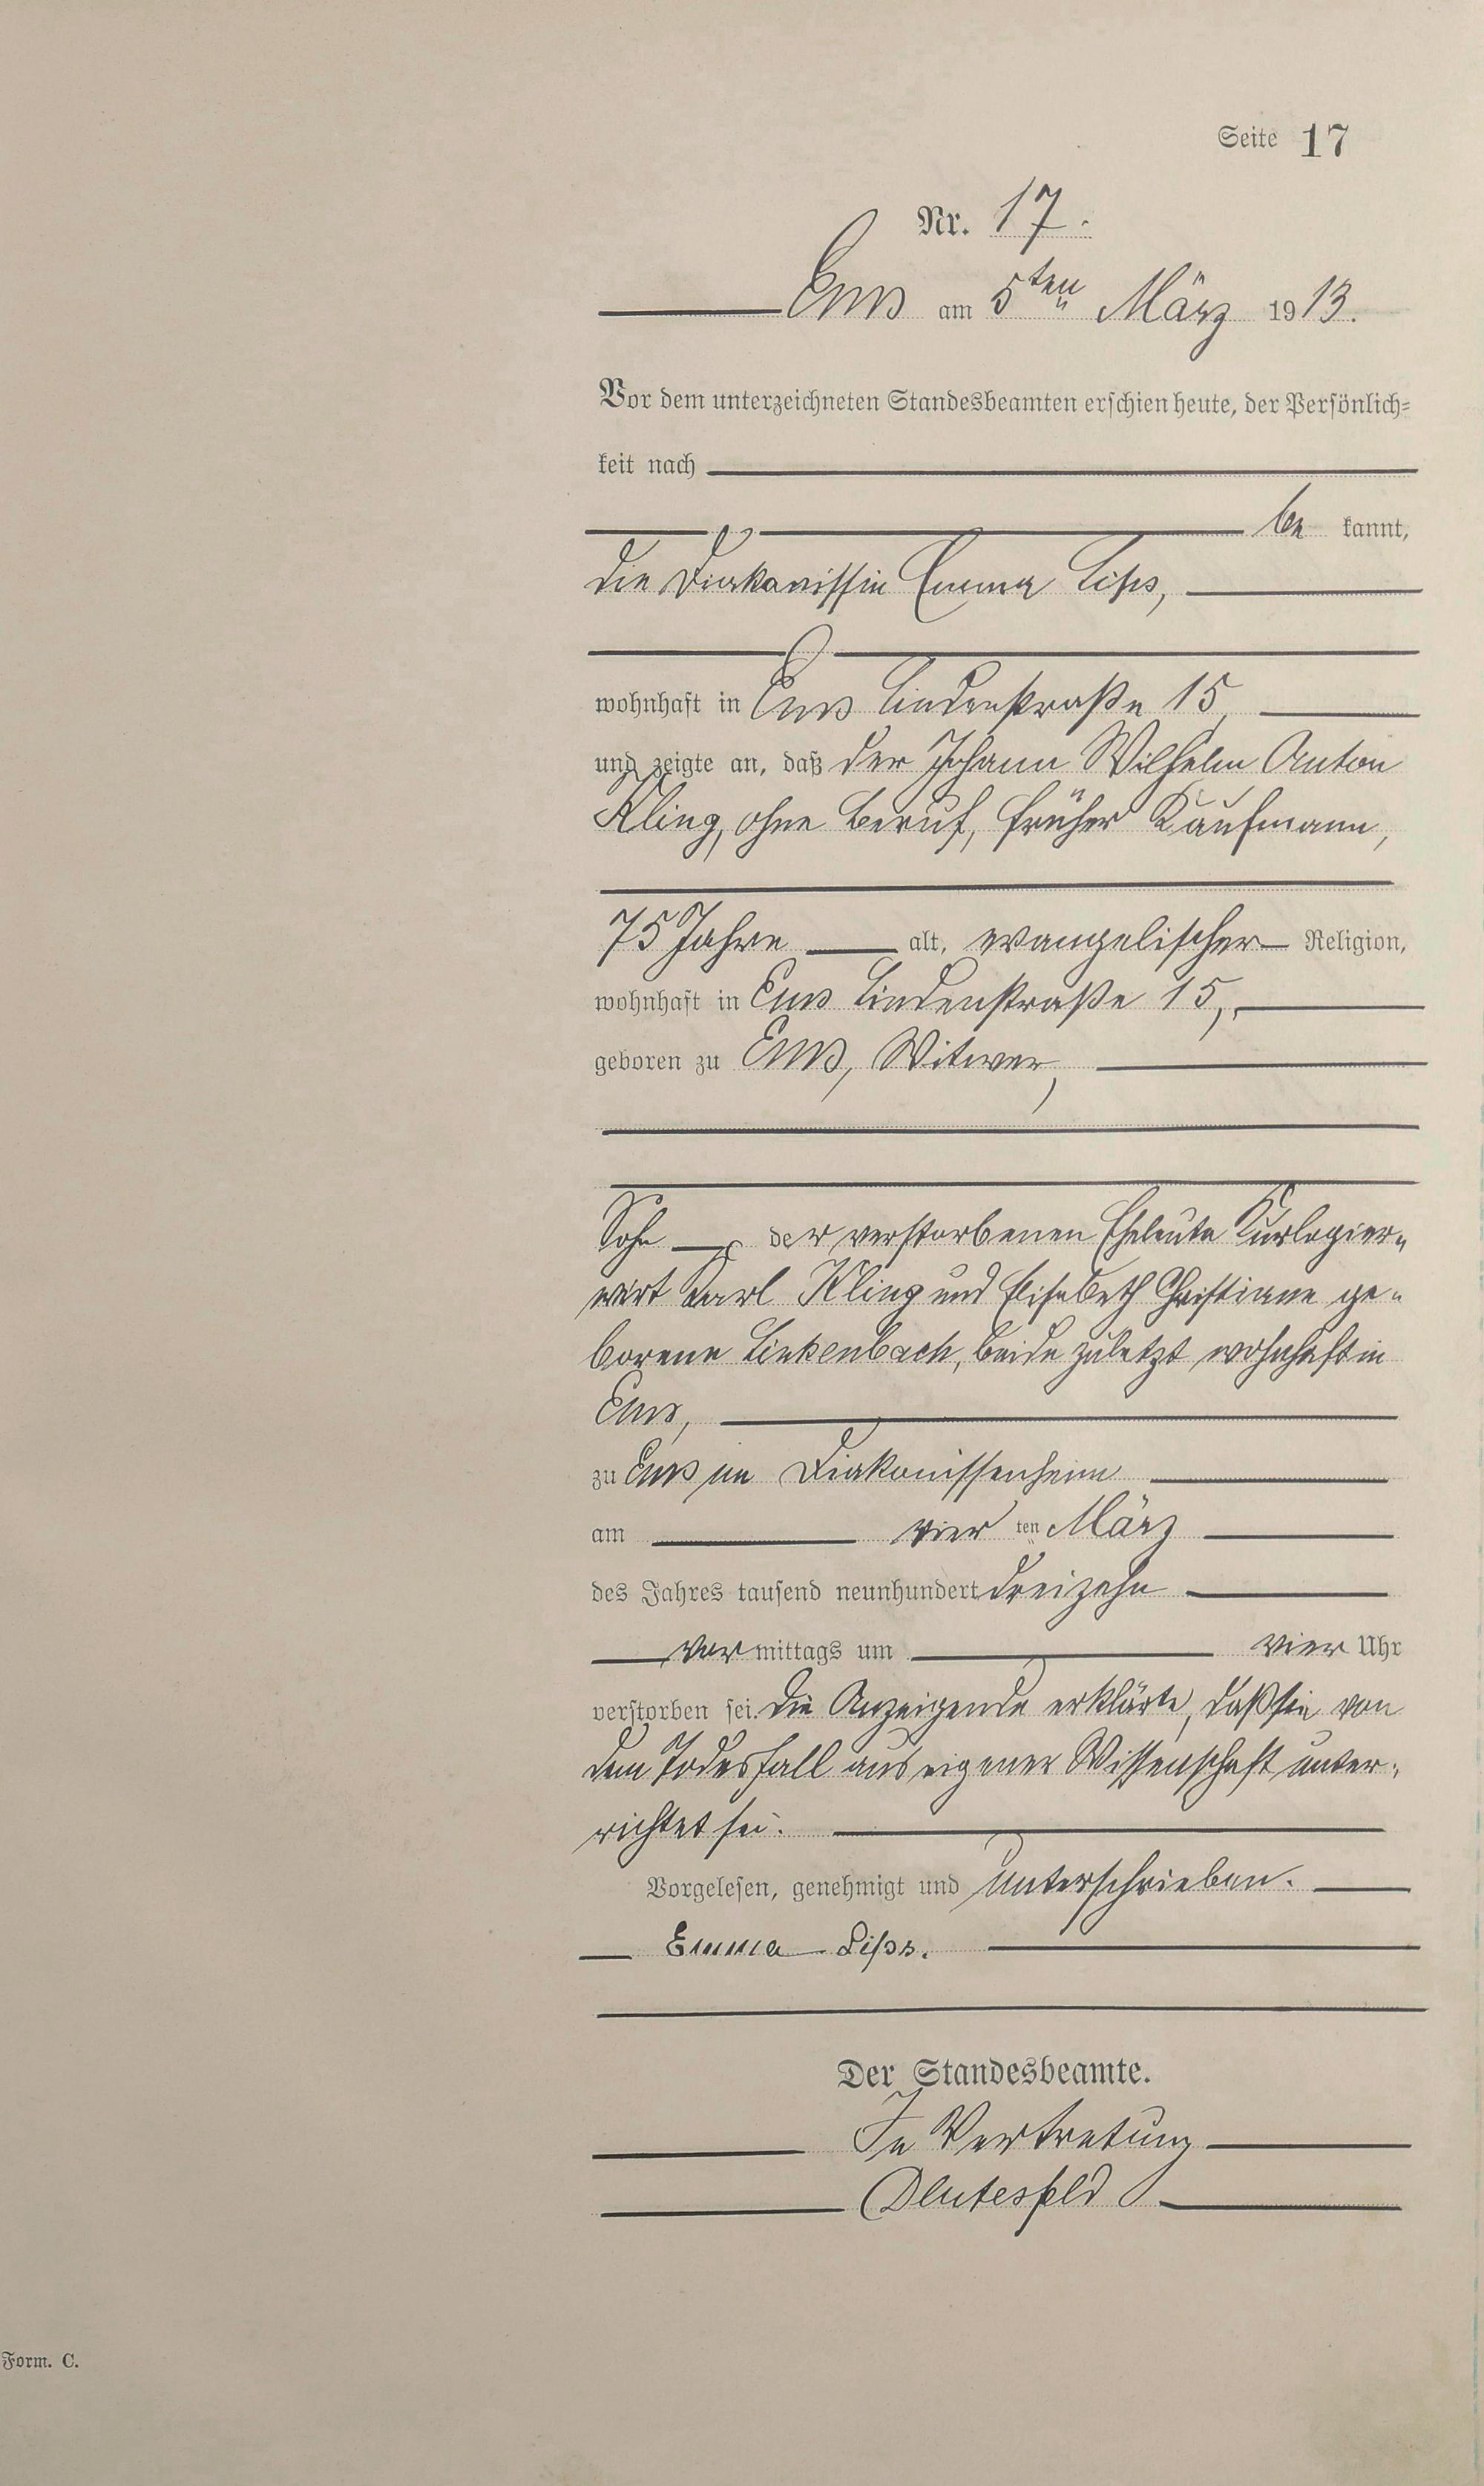 Seite 17
Nr. 17.
Ems am 5ten März 1913.
Vor dem unterzeichneten Standesbeamten erschien heute, der Persönlich=
keit nach
be kannt,
die Diakonissin Emma Lips,
wohnhaft in Ems Lindenstraße 15
und zeigte an, daß der Johann Wilhelm Anton
Kling, ohne Beruf, früher Kaufmann,
75 Jahre alt, evangelischer Religion,
wohnhaft in Ems Lindenstraße 15,
geboren zu Ems, Witwer,
Sohn der verstorbenen Eheleute Kurlogier-
wirt Karl Kling und Elisabeth Christiane ge-
borene Linkenbach, beide zuletzt wohnhaft in
Ems,
zu Ems im Diakonissenheim
am vier ten März
des Jahres tausend neunhundert dreizehn
vor mittags um vier Uhr
verstorben sei. Die Anzeigende erklärte, daß sie von
dem Todesfall aus eigener Wissenschaft unter-
richtet sei.
Vorgelesen, genehmigt und unterschrieben.
Emma Lips.
Der Standesbeamte.
In Vertretung
Form. C.